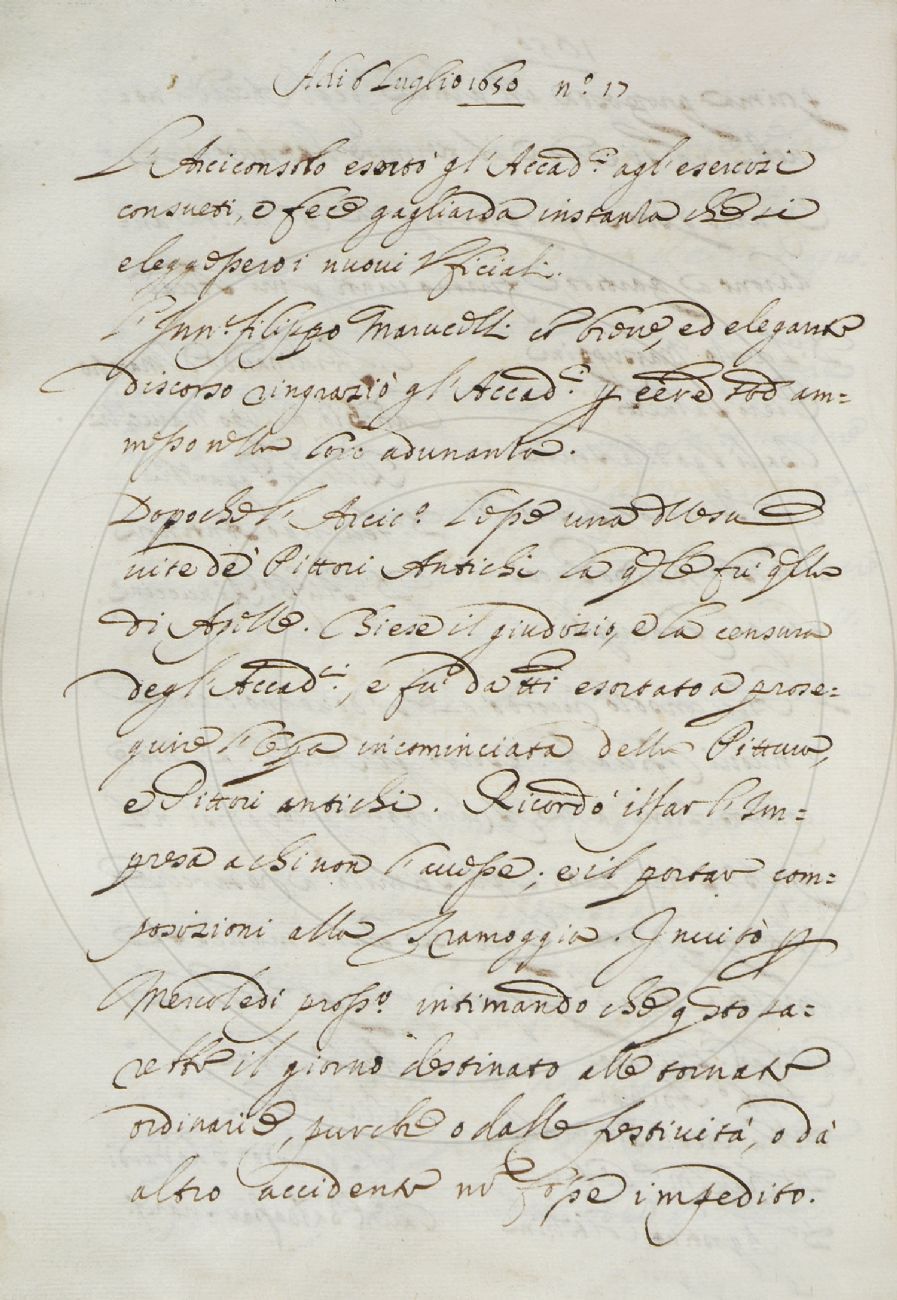 Adi 6 Luglio 1650 n.º 17
L'Arciconsolo esortò gl'Accad.ci agl'esercizi
consueti, e fece gagliarda instanza che si
eleggessero i nuovi Vficiali.
L'Inn.to Filippo Marucelli cō breue, ed elegante
discorso ringraziò gl'Accad.ci p eēre stō am=
messo nella loro adunanza.
Dopo che l'Arcic.º lesse una dlle sue
uite de' Pittori Antichi la qle fu qlla
di Apelle. Chiese il giudizio, e la censura
degl'Accad.ci, e fu da tti esortato a prose=
guire l'opa incominciata della Pittura,
e Pittori antichi. Ricordò il far l'Im=
presa a chi non l'auesse; e il portar com=
posizioni alla Tramoggia. Inuitò p
Mercoledì pross.º intimando che qsto sa=
rebbe il giorno destinato alle tornate
ordinarie, purche o dalle festiuità, o da
altro accidente nō fosse impedito.